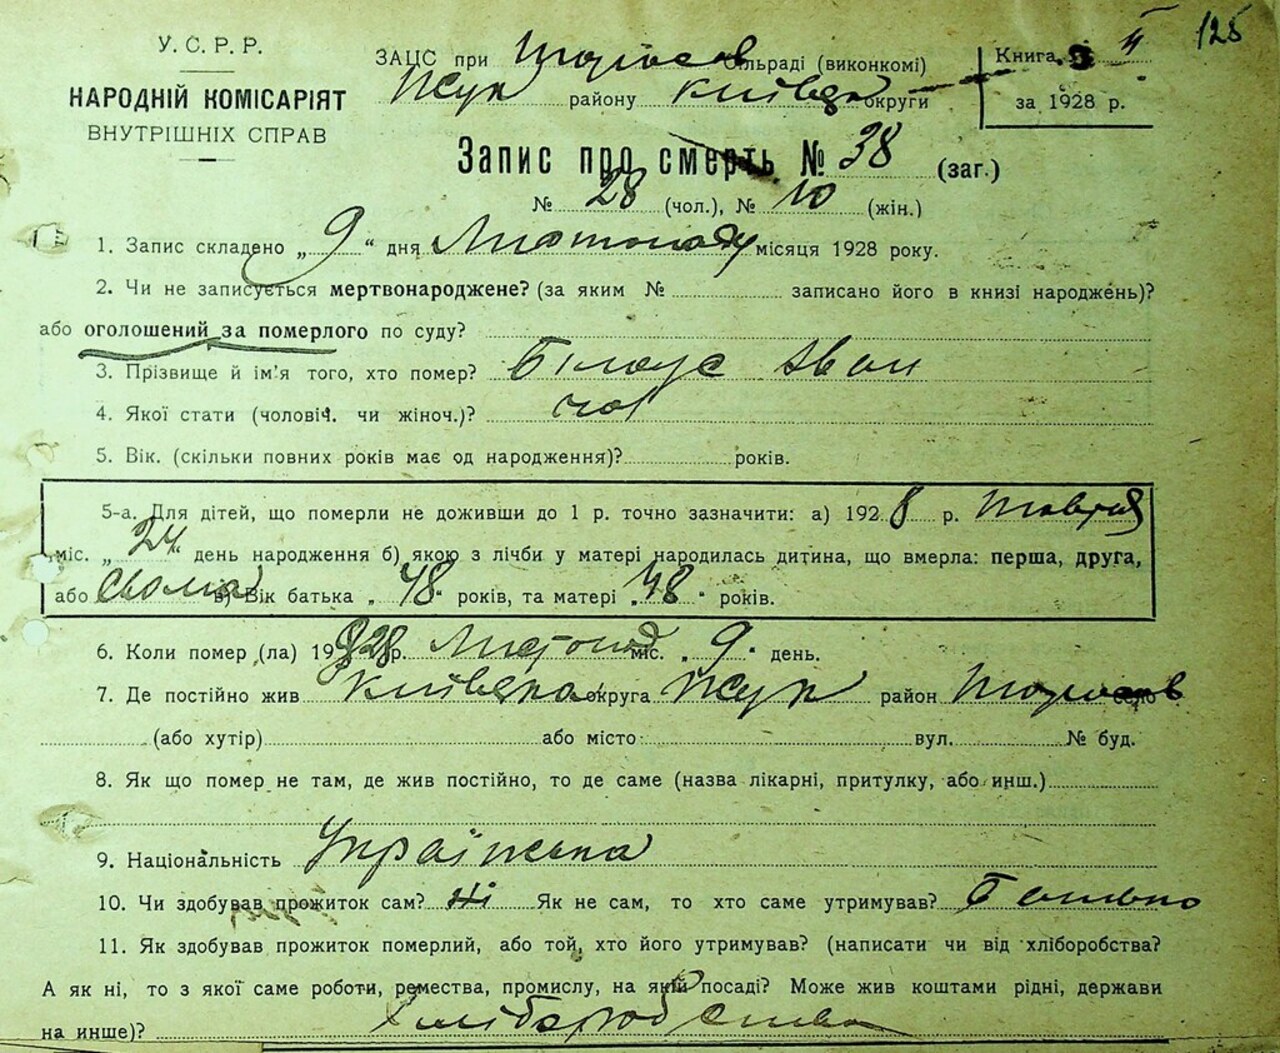 125
У. С. Р. Р.
НАРОДНІЙ КОМІСАРІЯТ
ВНУТРІШНІХ СПРАВ
ЗАЦС при сільраді (виконкомі)
району Київськ округи
Книга II
за 1928 р.
Запис про смерть № 38 (заг.)
№ 28 (чол.), № 10 (жін.)
1. Запис складено „ 9 “ дня Листопаду місяця 1928 року.
2. Чи не записується мертвонароджене? (за яким № записано його в книзі народжень)?
або оголошений за померлого по суду?
3. Прізвище й ім'я того, хто помер? Білоус Іван
4. Якої стати (чоловіч. чи жіноч.)? чол
5. Вік. (скільки повних років має од народження)? років.
5-а. Для дітей, що померли не доживши до 1 р. точно зазначити: а) 1928 р.
міс. „ 24 “ день народження б) якою з лічби у матері народилась дитина, що вмерла: перша, друга,
або в) Вік батька „ 48 “ років, та матері „ 48 “ років.
6. Коли помер (ла) 1928 р. Листопад міс. „ 9 “ день.
7. Де постійно жив Київська округа район село
(або хутір) або місто: вул. № буд.
8. Як що помер не там, де жив постійно, то де саме (назва лікарні, притулку, або инш.)
9. Національність Українська
10. Чи здобував прожиток сам? Ні Як не сам, то хто саме утримував? Батько
11. Як здобував прожиток померлий, або той, хто його утримував? (написати чи від хліборобства?
А як ні, то з якої саме роботи, ремества, промислу, на якій посаді? Може жив коштами рідні, держави
на инше)? Хліборобства